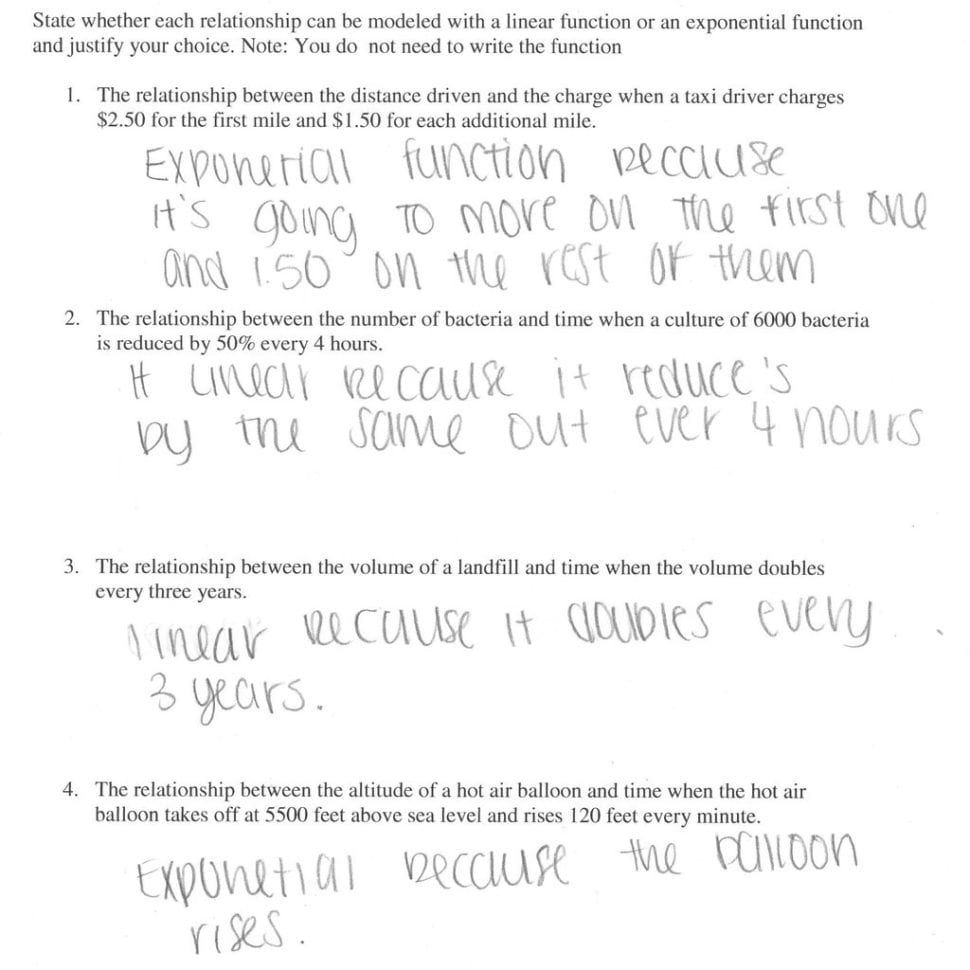 State whether each relationship can be modeled with a linear function or an exponential function
and justify your choice. Note: You do not need to write the function
1. The relationship between the distance driven and the charge when a taxi driver charges
$2.50 for the first mile and $1.50 for each additional mile.
Exponerial function because
it's going to more on the first one
and 1.50 on the rest of them
2. The relationship between the number of bacteria and time when a culture of 6000 bacteria
is reduced by 50% every 4 hours.
It Linear because it reduce's
by the same out ever 4 hours
3. The relationship between the volume of a landfill and time when the volume doubles
every three years.
linear because it doubles every
3 years.
4. The relationship between the altitude of a hot air balloon and time when the hot air
balloon takes off at 5500 feet above sea level and rises 120 feet every minute.
Exponetial because the balloon
rises.